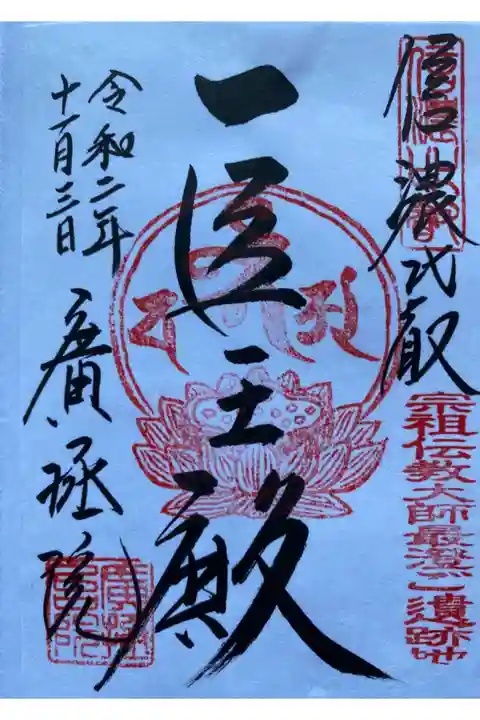 信濃比叡
宗祖伝教大師最澄ご遺跡地
一医王殿
令和二年
十一月三日
廣拯院